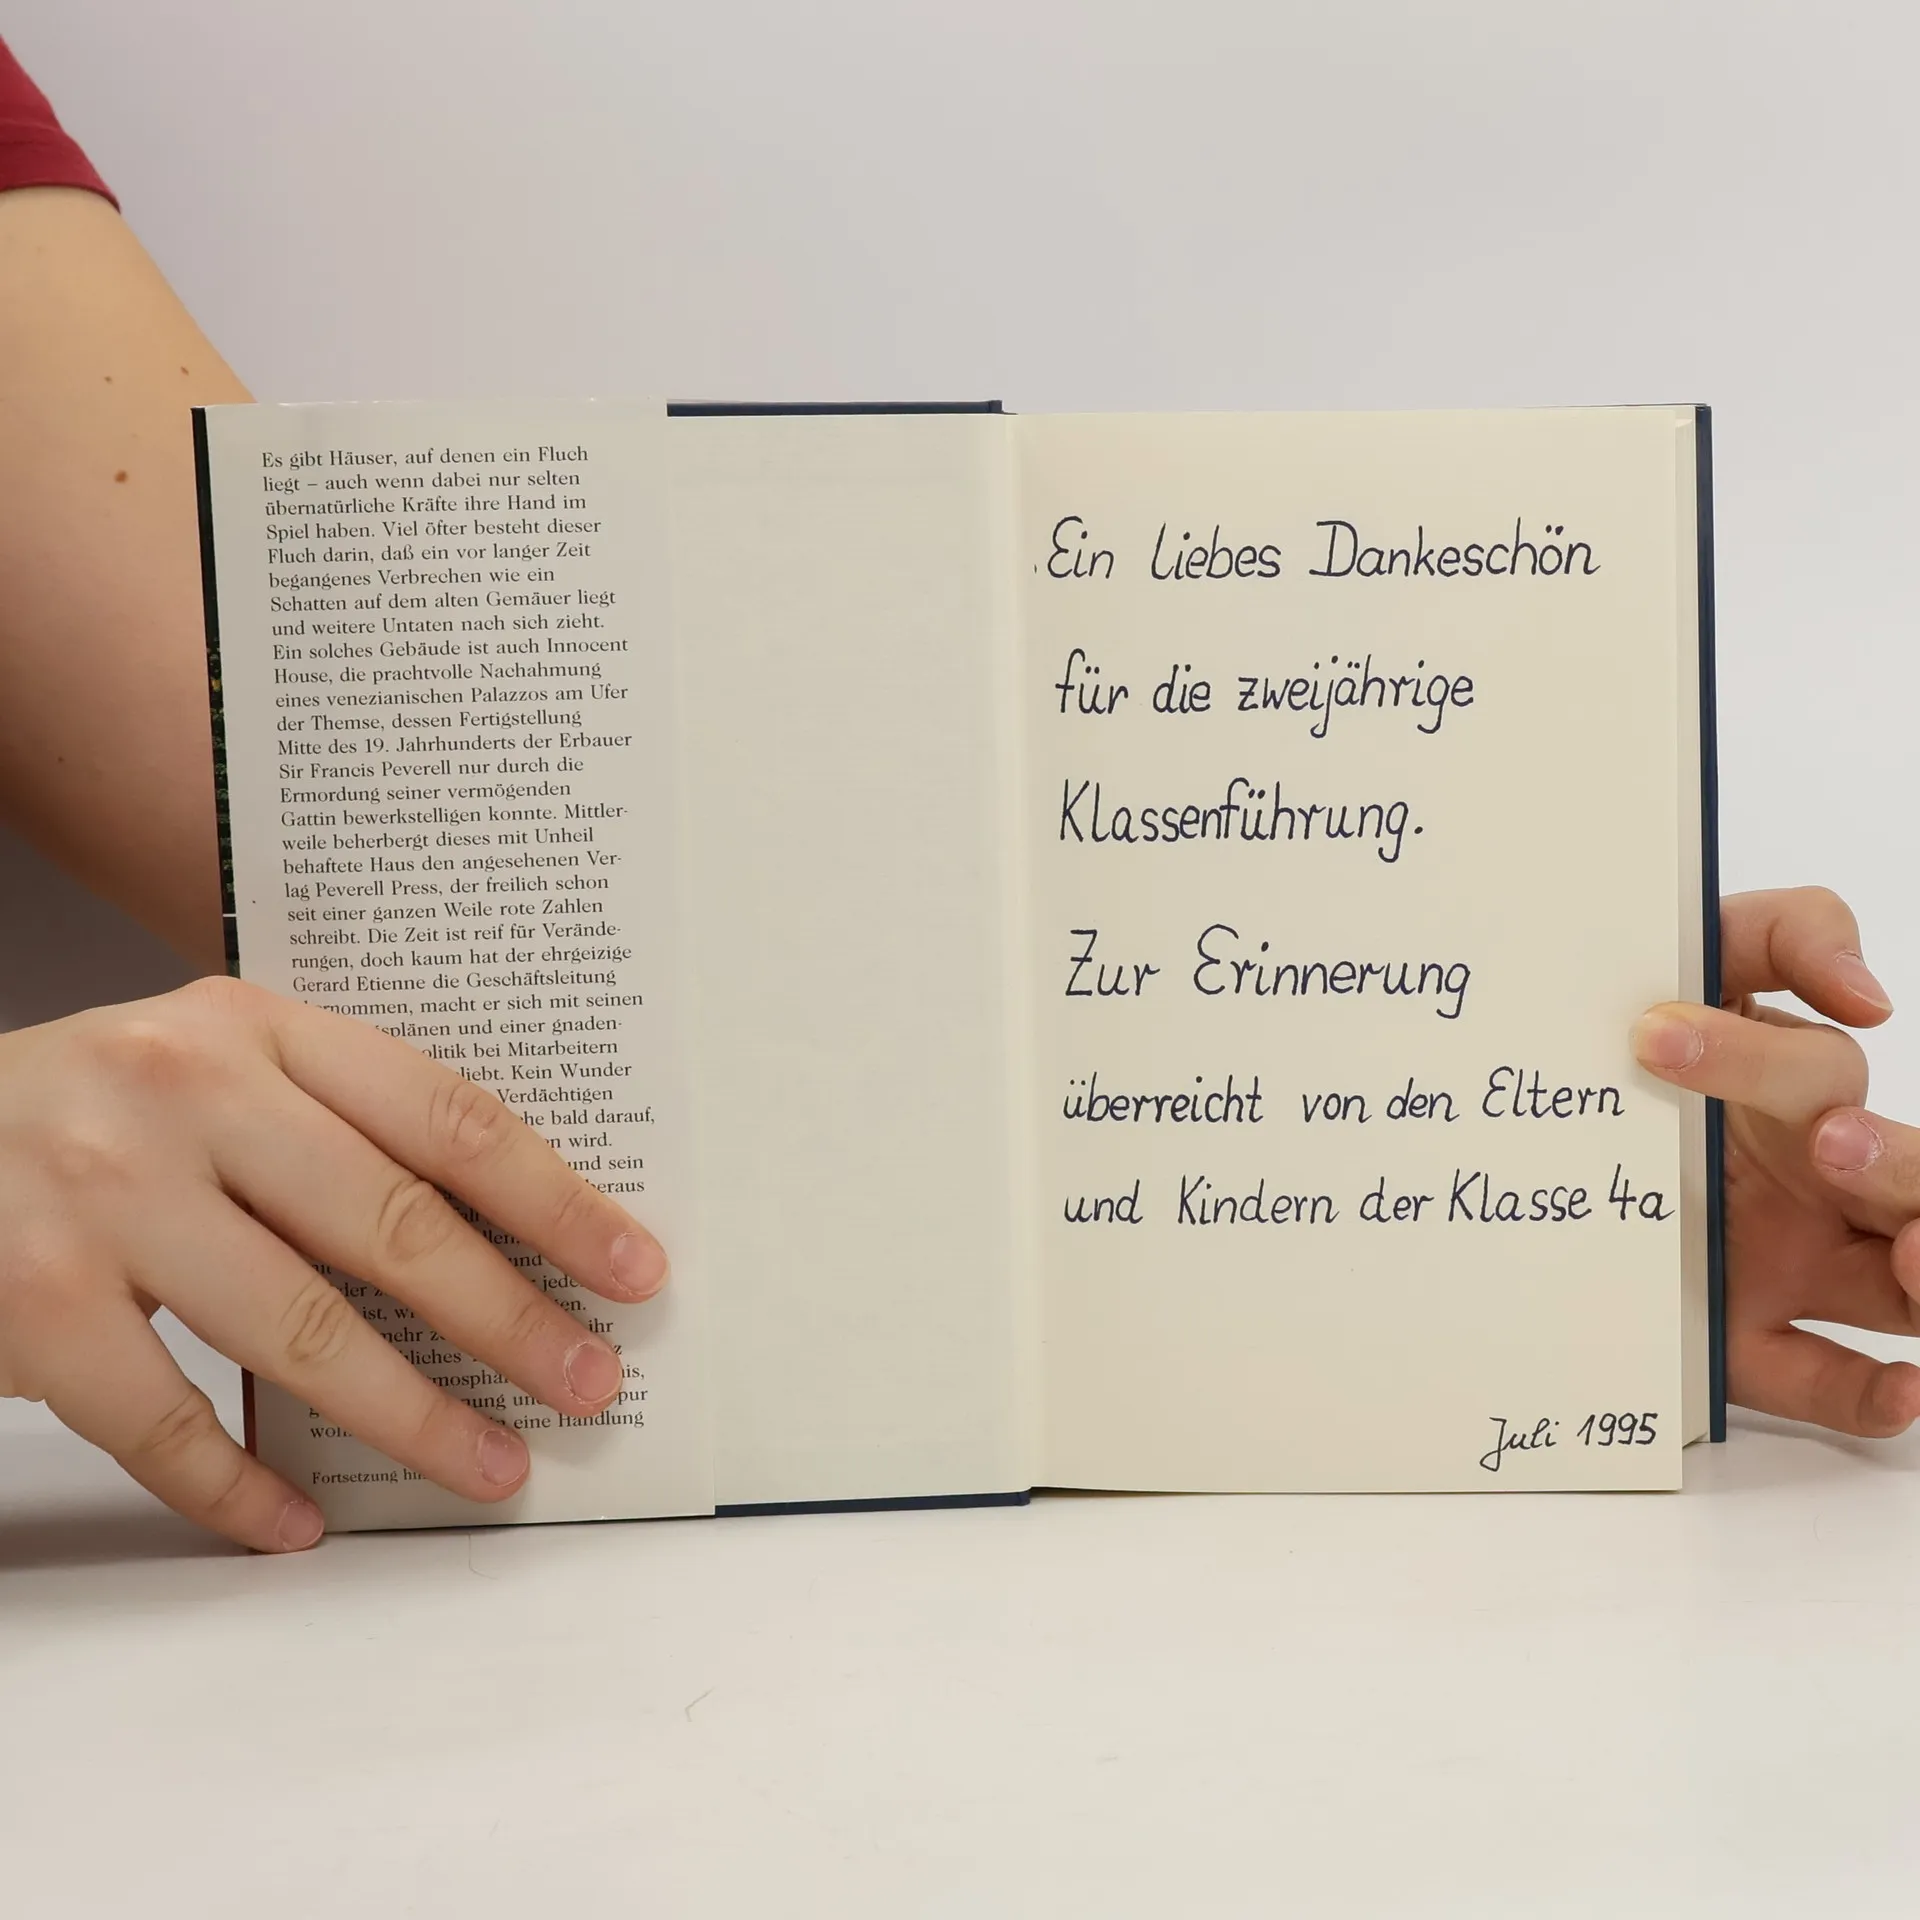 Es gibt Häuser, auf denen ein Fluch
liegt – auch wenn dabei nur selten
übernatürliche Kräfte ihre Hand im
Spiel haben. Viel öfter besteht dieser
Fluch darin, daß ein vor langer Zeit
begangenes Verbrechen wie ein
Schatten auf dem alten Gemäuer liegt
und weitere Untaten nach sich zieht.
Ein solches Gebäude ist auch Innocent
House, die prachtvolle Nachahmung
eines venezianischen Palazzos am Ufer
der Themse, dessen Fertigstellung
Mitte des 19. Jahrhunderts der Erbauer
Sir Francis Peverell nur durch die
Ermordung seiner vermögenden
Gattin bewerkstelligen konnte. Mittler-
weile beherbergt dieses mit Unheil
behaftete Haus den angesehenen Ver-
lag Peverell Press, der freilich schon
seit einer ganzen Weile rote Zahlen
schreibt. Die Zeit ist reif für Verände-
rungen, doch kaum hat der ehrgeizige
Gerard Etienne die Geschäftsleitung
macht er sich mit seinen
und einer gnaden-
bei Mitarbeitern
Kein Wunder
Verdächtigen
bald darauf,
wird.
und sein
und
ist,
ihr
eine Handlung
Fortsetzung
Ein liebes Dankeschön
für die zweijährige
Klassenführung.
Zur Erinnerung
überreicht von den Eltern
und Kindern der Klasse 4a
Juli 1995